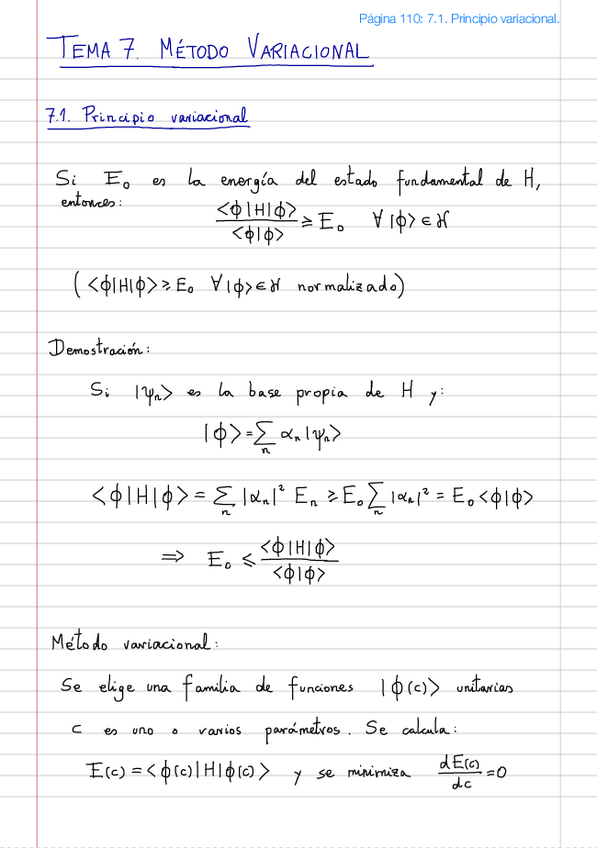 Página 110: 7.1. Principio variacional.
TEMA 7. MÉTODO VARIACIONAL
7.1. Principio variacional
Si E₀ es la energía del estado fundamental de H,
entonces: <ϕ|H|ϕ>/<ϕ|ϕ> ≥ E₀ ∀ |ϕ> ∈ ℋ
(<ϕ|H|ϕ> ≥ E₀ ∀ |ϕ> ∈ ℋ normalizado)
Demostración:
Si |ψₙ> es la base propia de H y:
|ϕ> = ∑ₙ αₙ |ψₙ>
<ϕ|H|ϕ> = ∑ₙ |αₙ|² Eₙ ≥ E₀ ∑ₙ |αₙ|² = E₀ <ϕ|ϕ>
⇒ E₀ ≤ <ϕ|H|ϕ>/<ϕ|ϕ>
Método variacional:
Se elige una familia de funciones |ϕ(c)> unitarias
c es uno o varios parámetros. Se calcula:
E(c) = <ϕ(c)|H|ϕ(c)> y se minimiza dE(c)/dc = 0